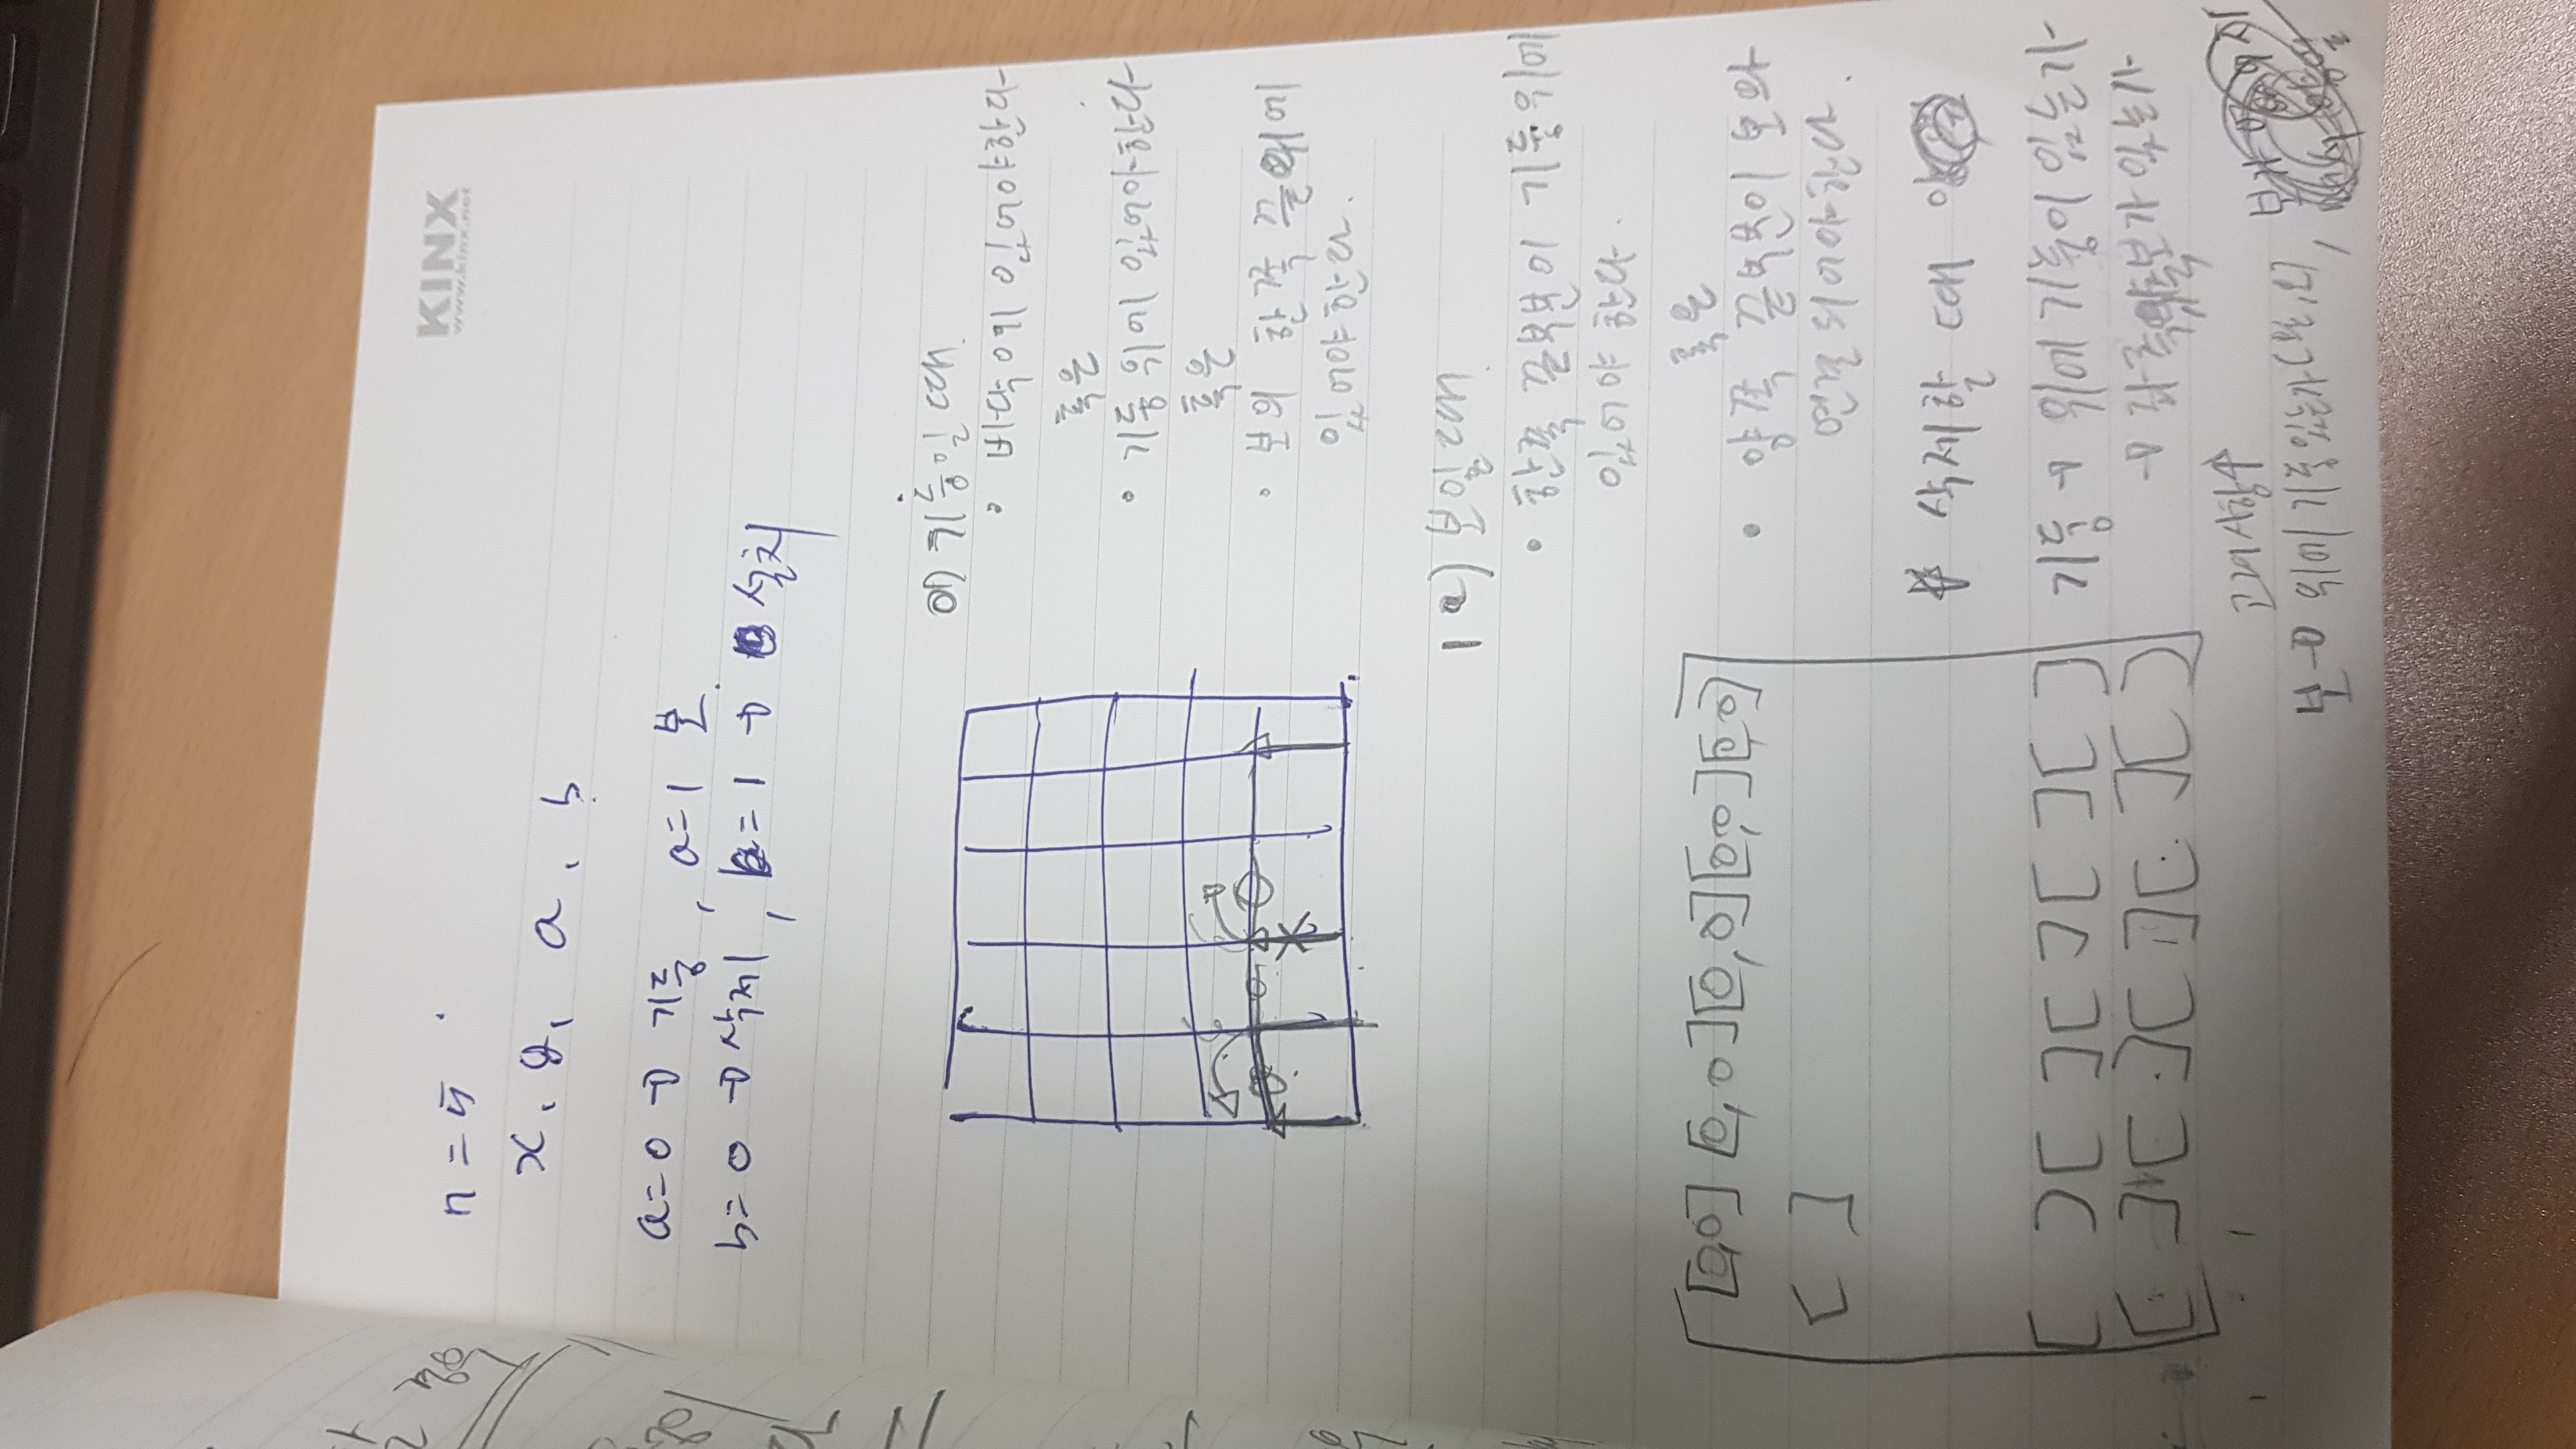 KINX
www.kinx.net
n = 5
x, y, a, b
a=0 → 기둥, a=1 보.
b=0 → 삭제, b=1 → 설치
기둥일 때
• 바닥에 있어야한다
혹은
• 기둥 위에 있어야한다
혹은
• 보의 한쪽 끝 위에
있어야 한다.
1 보일 때
• 한쪽 끝부분이 기둥위에
있어야 한다.
혹은
• 양쪽 끝부분이 보와
연결되어야한다.
[0,0] [0,0] [0,0] [0,0] [0,0]
[ ]
삭제할 때
[ ] [ ] [ ] [ ] [ ]
기둥 → 위에 기둥이 있는가
[ ] [ ] [ ] [ ] [ ]
→ 보가 있는가
고려사항↑
보 → 위에 기둥있는가(왼,오),